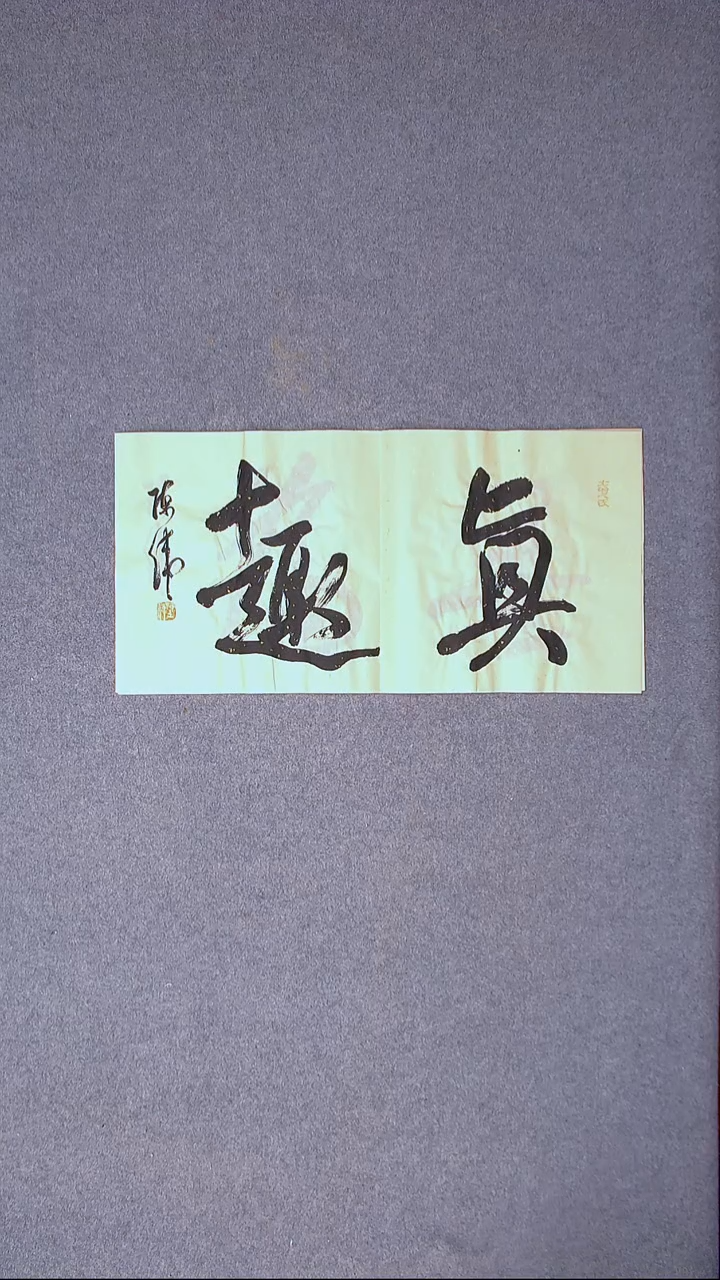 真趣
陈伟